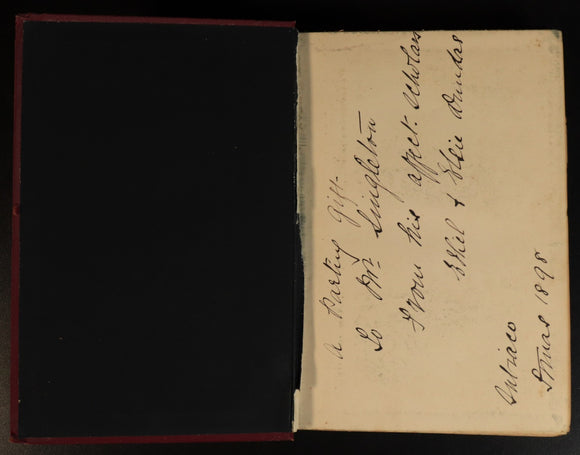 A Parting Gift
To Mr. Singleton
From his affect. scholars
Ethel & Elsie Dundas
Xmas 1898